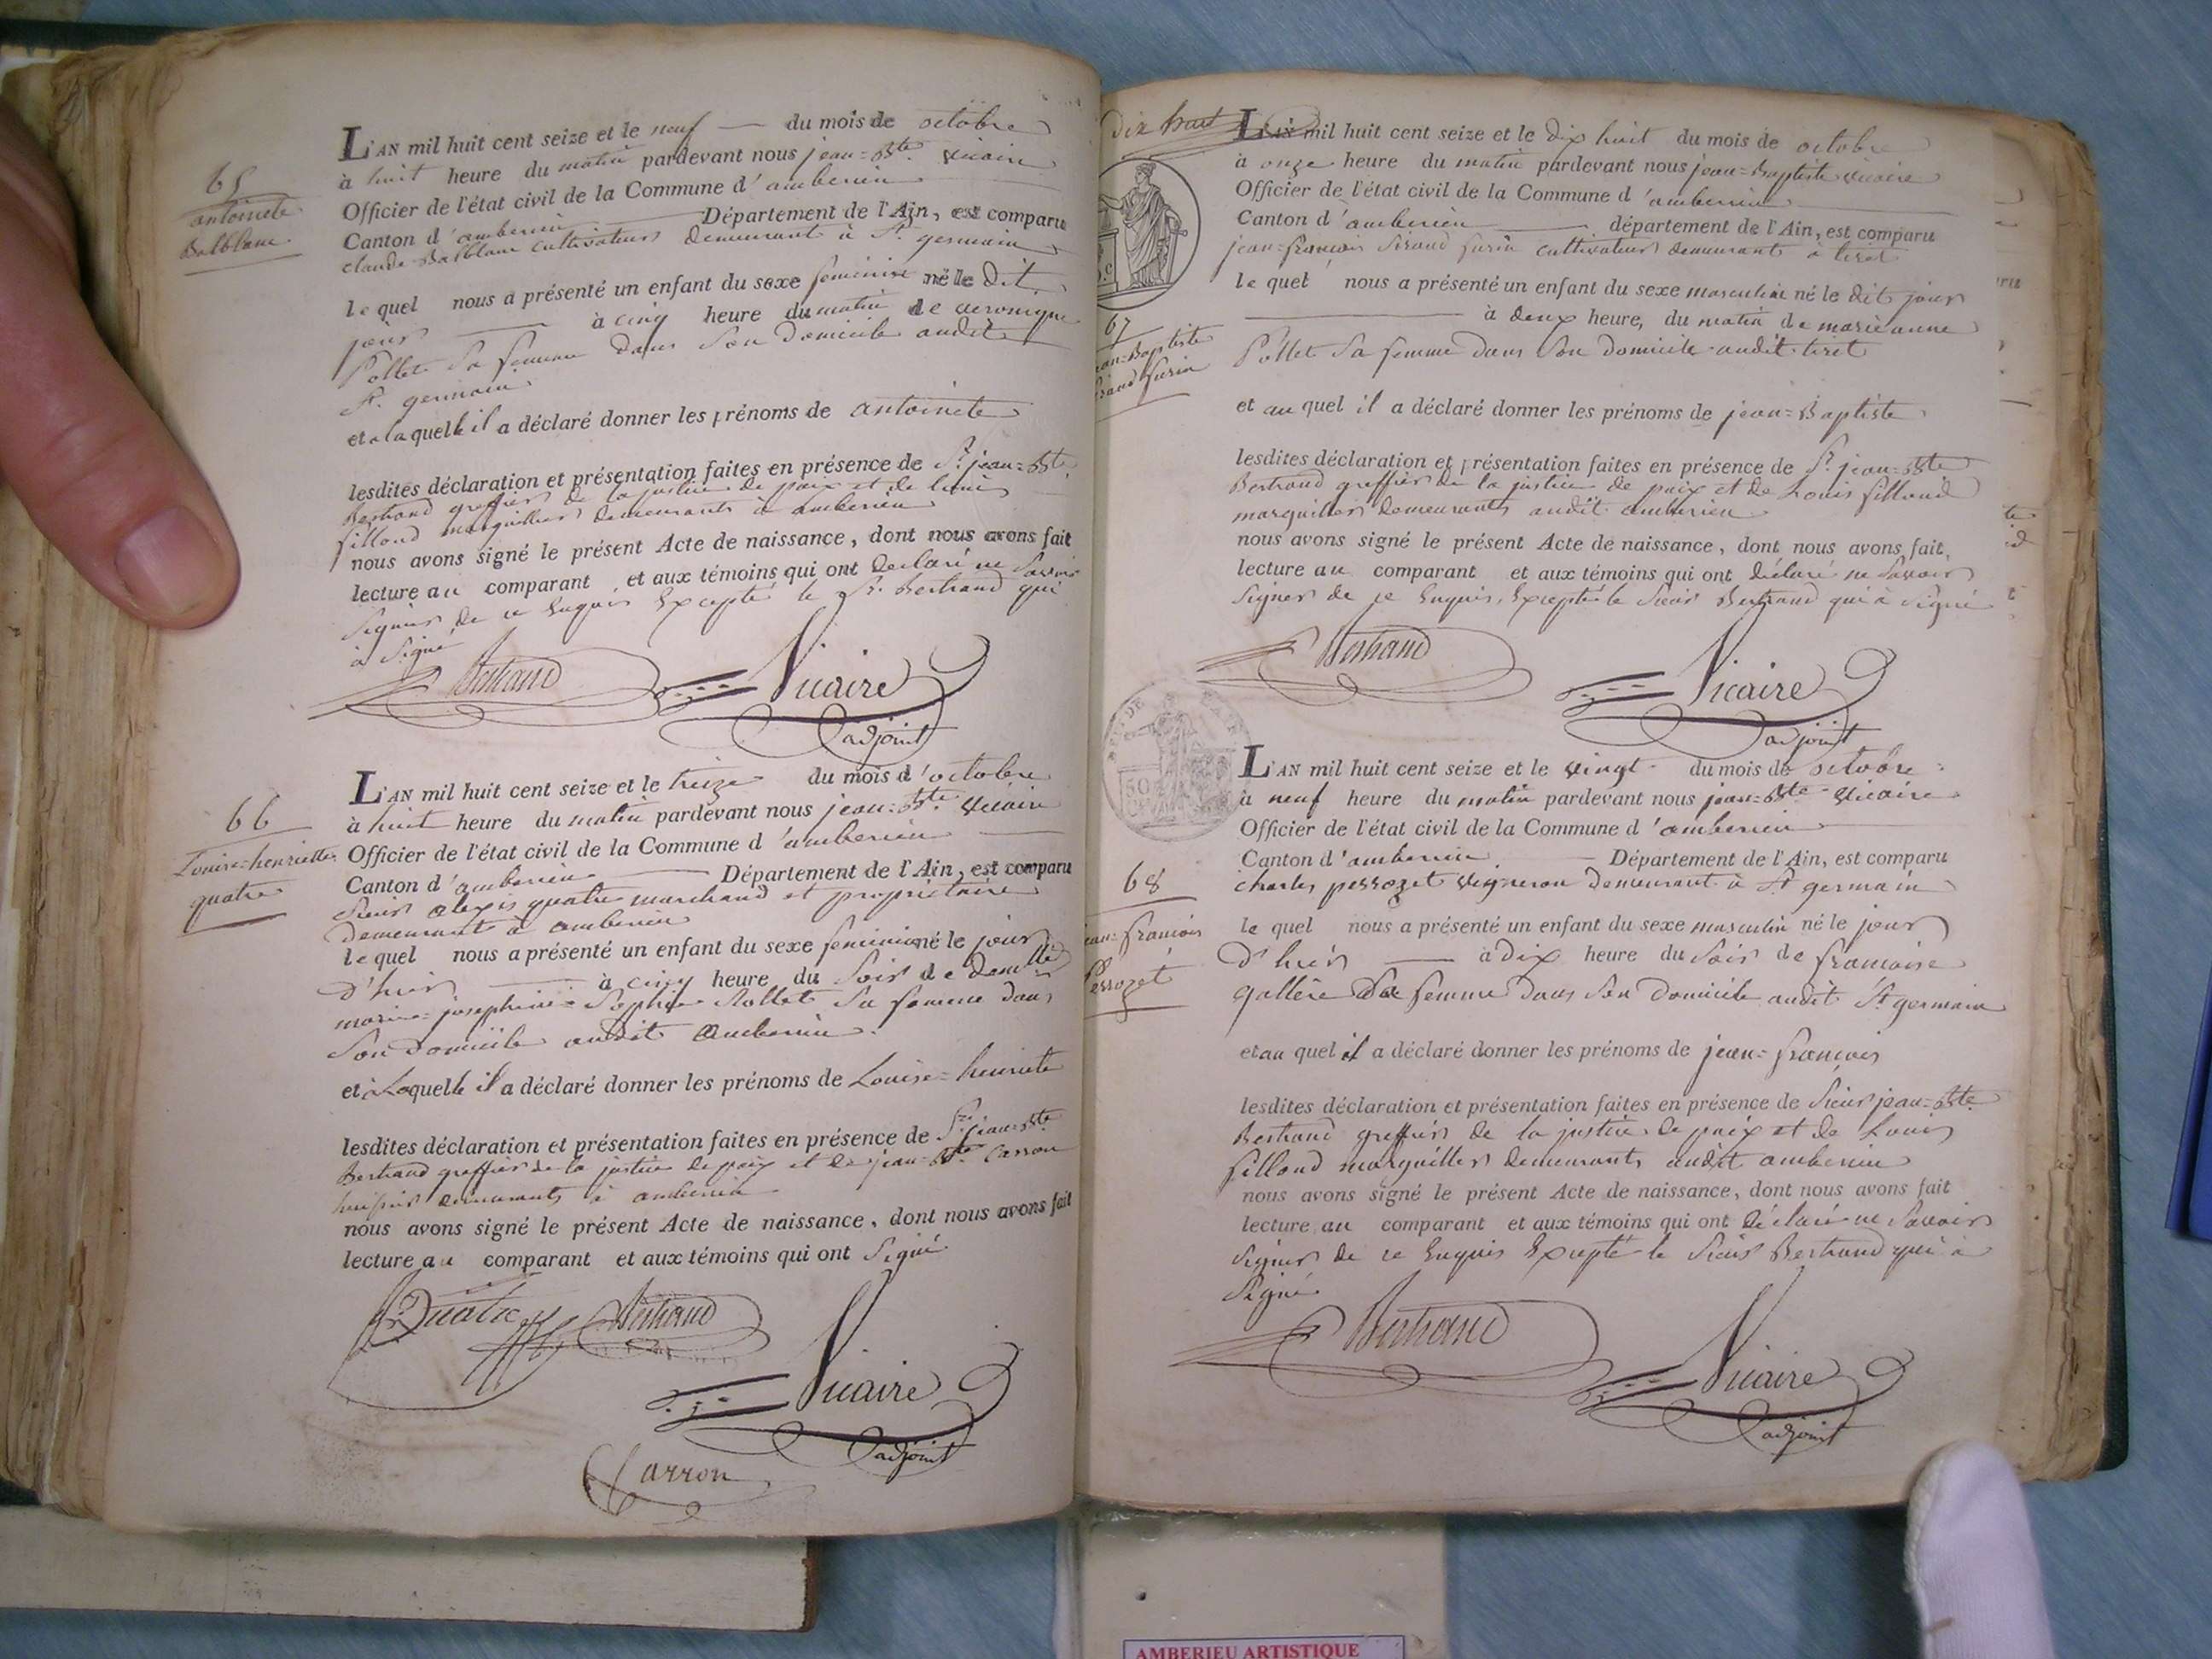 65
antoinete
Balblanc
L'AN mil huit cent seize et le neuf du mois de octobre
à huit heure du matin pardevant nous jean=Bte. Vicaire
Officier de l'état civil de la Commune d'amberieu
Canton d'amberieu Département de l'Ain, est comparu
claude Balblanc cultivateur demeurant à St. germain
le quel nous a présenté un enfant du sexe feminine né le dit
jour à cinq heure du matin de veronique
Pollet Sa femme dans Son domicile audit
St. germain
et a laquelle il a déclaré donner les prénoms de antoinete
lesdites déclaration et présentation faites en présence de Sr. jean=Bte
Bertrand greffier de la justice de paix et de Louis
fillond marguillier demeurants à amberieu
nous avons signé le présent Acte de naissance, dont nous avons fait
lecture au comparant et aux témoins qui ont declaré ne Savoir
Signer de ce Enquis Excepté le Sr. Bertrand qui
à Signé
Bertrand Vicaire
adjoint
66
Louise=henriette
quatre
L'AN mil huit cent seize et le treize du mois d'octobre
à huit heure du matin pardevant nous jean=Bte Vicaire
Officier de l'état civil de la Commune d'amberieu
Canton d'amberieu Département de l'Ain, est comparu
Sieur alexis quatre marchand et propriétaire
demeurant à amberieu
le quel nous a présenté un enfant du sexe feminine né le jour
d'hier à cinq heure du Soir de demlle
marie=josephine=Sophie Rollet Sa femme dans
Son domicile audit amberieu
et à Laquelle il a déclaré donner les prénoms de Louise=henriete
lesdites déclaration et présentation faites en présence de Sr. jean=Bte
Bertrand greffier de la justice de paix et de jean=Bte. Carron
huissier demeurants à amberieu
nous avons signé le présent Acte de naissance, dont nous avons fait
lecture au comparant et aux témoins qui ont Signé
Quatre Bertrand
Vicaire
adjoint
Carron
dix huit
67
jean=Baptiste
Siraud furin
L'AN mil huit cent seize et le dix huit du mois de octobre
à onze heure du matin pardevant nous jean=Baptiste Vicaire
Officier de l'état civil de la Commune d'amberieu
Canton d'amberieu département de l'Ain, est comparu
jean=francois Siraud furin cultivateur demeurant à tiret
le quel nous a présenté un enfant du sexe masculin né le dit jour
à deux heure, du matin de marieanne
Pollet Sa femme dans Son domicile audit tiret
et au quel il a déclaré donner les prénoms de jean=Baptiste
lesdites déclaration et présentation faites en présence de Sr. jean=Bte
Bertrand greffier de la justice de paix et de Louis fillond
marguillier demeurants audit amberieu
nous avons signé le présent Acte de naissance, dont nous avons fait
lecture au comparant et aux témoins qui ont déclaré ne Savoir
Signer de ce Enquis, Excepté le Sieur Bertrand qui à Signé
Bertrand Vicaire
adjoint
68
jean=francois
Perrozet
L'AN mil huit cent seize et le vingt du mois de octobre
à neuf heure du matin pardevant nous jean=Bte Vicaire
Officier de l'état civil de la Commune d'amberieu
Canton d'amberieu Département de l'Ain, est comparu
charles perrozet vigneron demeurant à St germain
le quel nous a présenté un enfant du sexe masculin né le jour
d'hier à dix heure du Soir de francoise
gallere Sa femme dans Son domicile audit St germain
et au quel il a déclaré donner les prénoms de jean=francois
lesdites déclaration et présentation faites en présence de Sieur jean=Bte
Bertrand greffier de la justice de paix et de Louis
fillond marguillier demeurants audit amberieu
nous avons signé le présent Acte de naissance, dont nous avons fait
lecture au comparant et aux témoins qui ont déclaré ne Savoir
Signer de ce Enquis Excepté le Sieur Bertrand qui à
Signé
Bertrand Vicaire
adjoint
AMBERIEU ARTISTIQUE